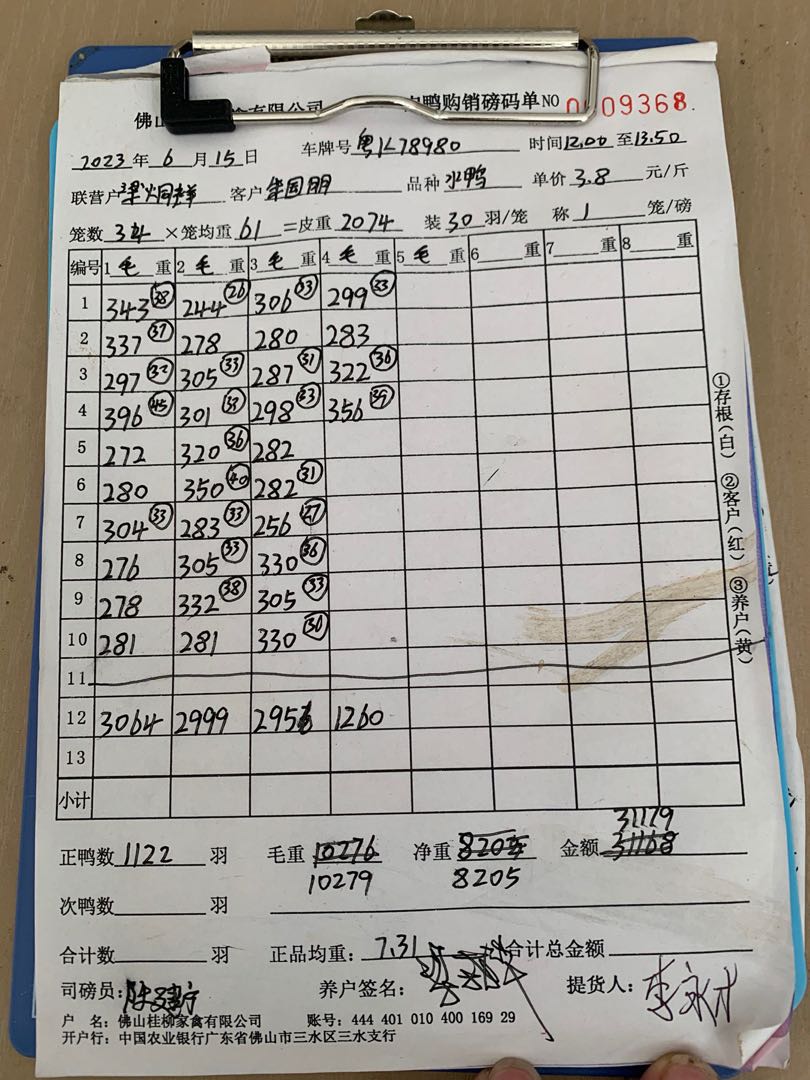 佛山 家禽有限公司 肉鸭购销磅码单 NO 0009368
2023年6月15日 车牌号粤K78980 时间12.00至13.50
联营户梁炯祥 客户 品种水鸭 单价3.8元/斤
笼数34×笼均重61=皮重2074 装30羽/笼 称1笼/磅
编号 1毛重 2毛重 3毛重 4毛重 5毛重 6重 7重 8重
1 343 38 244 26 306 33 299 33
2 337 37 278 280 283
3 297 32 305 33 287 31 322 36
4 396 45 301 298 33 356 39
5 272 320 36 282
6 280 350 40 282 31
7 304 33 283 33 256 27
8 276 305 33 330 36
9 278 332 38 305 33
10 281 281 330 36
11
12 3064 2999 2956 1260
13
小计
31179
正鸭数1122羽 毛重10276 净重8205 金额31168
10279 8205
次鸭数羽
合计数羽 正品均重:7.31 合计总金额
司磅员: 养户签名: 提货人:李永才
户 名:佛山桂柳家禽有限公司 账号:444 401 010 400 169 29
开户行:中国农业银行广东省佛山市三水区三水支行
①存根(白) ②客户(红) ③养户(黄)